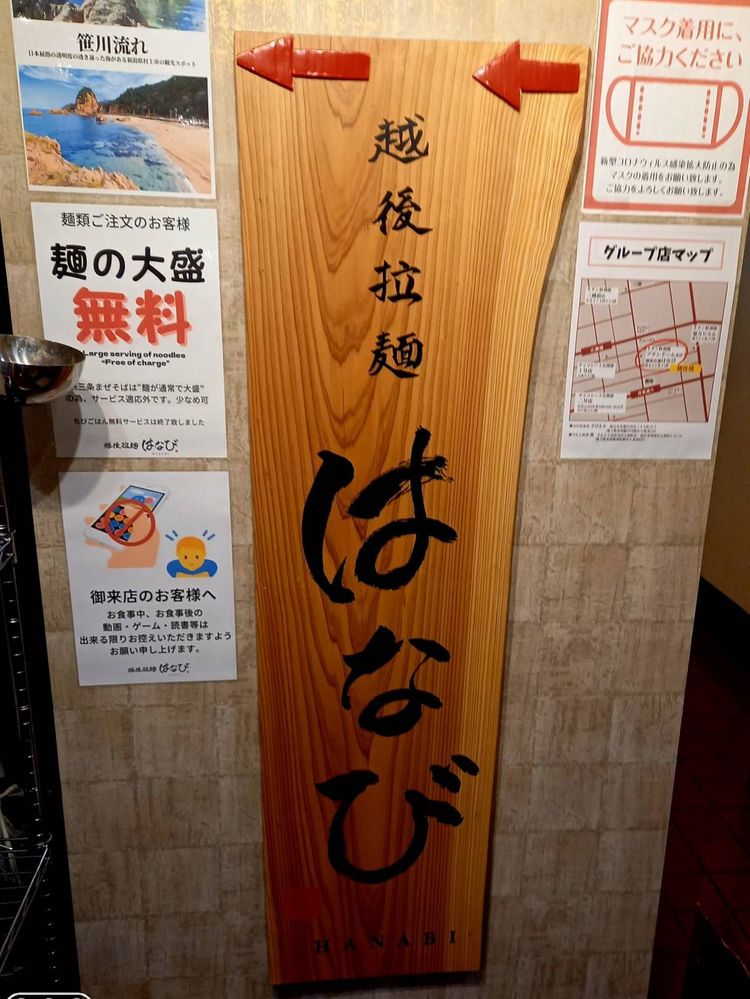 笹川流れ
日本屈指の透明度の透き通った海がある新潟県村上市の観光スポット
麺類ご注文のお客様
麺の大盛
無料
Large serving of noodles
"Free of charge"
三条まぜそばは"麺が通常で大盛"
の為、サービス適応外です。少なめ可
ちびごはん無料サービスは終了致しました
越後拉麺 はなび
御来店のお客様へ
お食事中、お食事後の
動画・ゲーム・読書等は
出来る限りお控えいただきますよう
お願い申し上げます。
越後拉麺 はなび
越後拉麺
はなび
HANABI
マスク着用に、
ご協力ください
新型コロナウィルス感染拡大防止の為
マスクの着用をお願い致します。
ご協力をよろしくお願い致します。
グループ店マップ